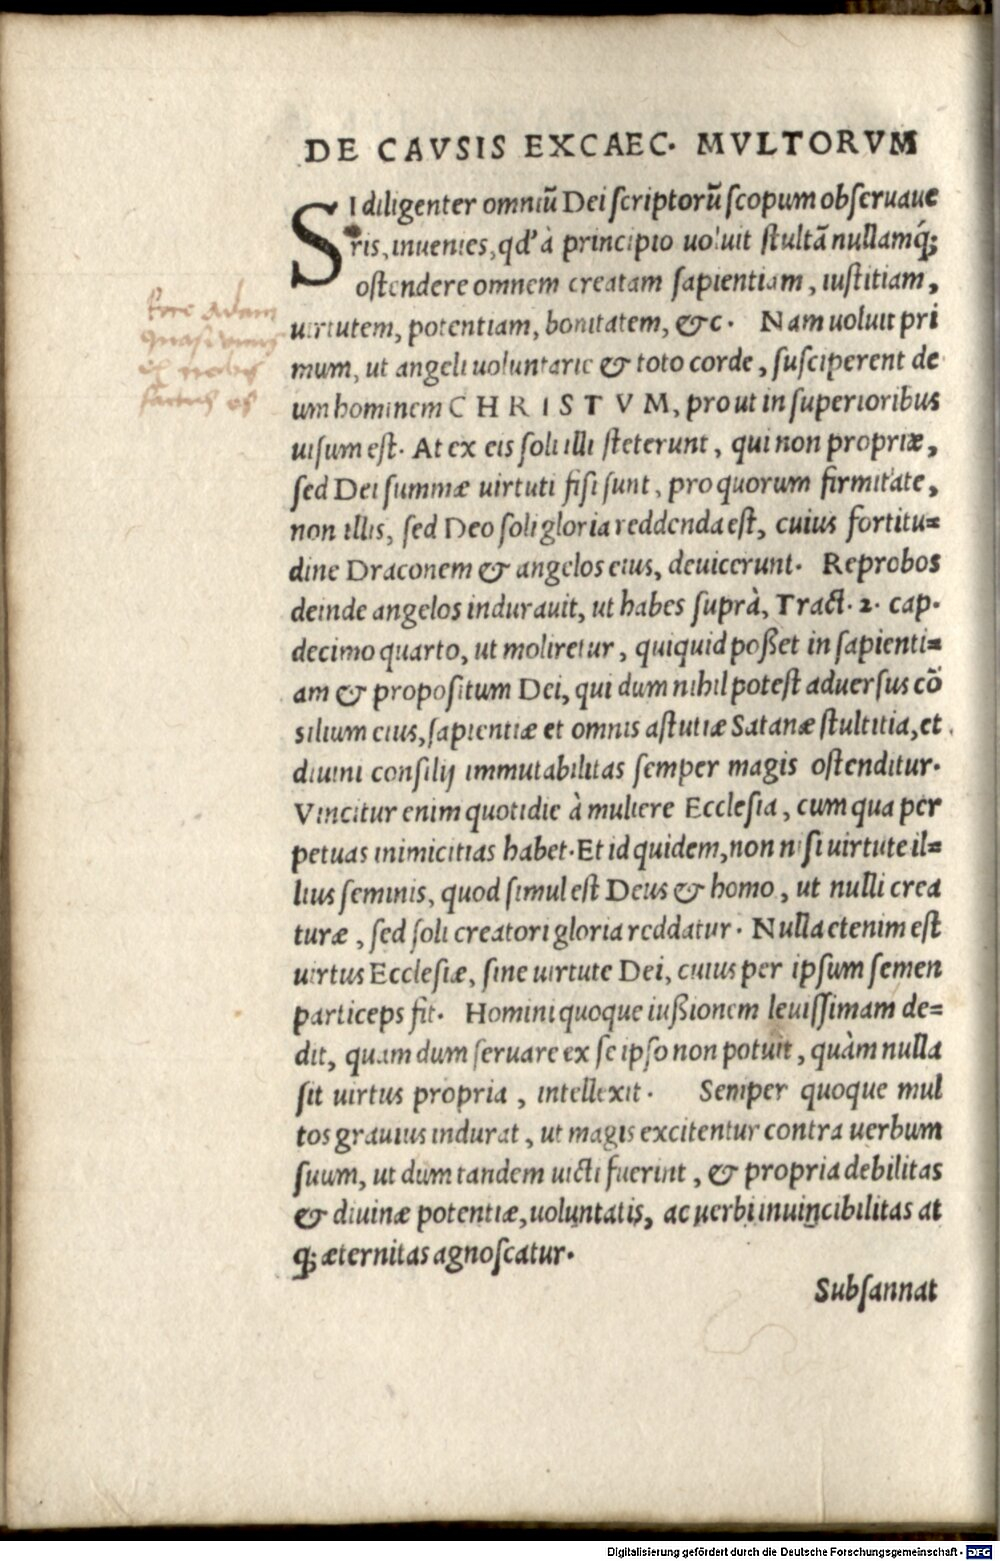 DE CAVSIS EXCAEC. MVLTORVM
SI diligenter omniū Dei ſcriptorū ſcopum obſeruaue
ris, inuenies, qd' à principio uoluit ſtultā nullamq́;
oſtendere omnem creatam ſapientiam, iuſtitiam,
uirtutem, potentiam, bonitatem, &c. Nam uoluit pri
mum, ut angeli uoluntarie & toto corde, ſuſciperent de
um hominem CHRISTVM, prout in ſuperioribus
uiſum eſt. At ex eis ſoli illi ſteterunt, qui non propriæ,
ſed Dei ſummæ uirtuti fiſi ſunt, pro quorum firmitate,
non illis, ſed Deo ſoli gloria reddenda eſt, cuius fortitu=
dine Draconem & angelos eius, deuicerunt. Reprobos
deinde angelos indurauit, ut habes ſuprà, Tract. 2. cap.
decimo quarto, ut moliretur, quiquid poßet in ſapienti=
am & propoſitum Dei, qui dum nihil poteſt aduerſus cō
silium eius, ſapientiæ et omnis aſtutiæ Satanæ ſtultitia, et
diuini conſilij immutabilitas ſemper magis oſtenditur.
Vincitur enim quotidie à muliere Eccleſia, cum qua per
petuas inimicitias habet. Et id quidem, non niſi uirtute il=
lius ſeminis, quod ſimul eſt Deus & homo, ut nulli crea
turæ, ſed ſoli creatori gloria reddatur. Nulla etenim eſt
uirtus Eccleſiæ, ſine uirtute Dei, cuius per ipſum ſemen
particeps fit. Homini quoque iußionem leuiſſimam de=
dit, quam dum ſeruare ex ſe ipſo non potuit, quàm nulla
ſit uirtus propria, intellexit. Semper quoque mul
tos grauius indurat, ut magis excitentur contra uerbum
ſuum, ut dum tandem uicti fuerint, & propria debilitas
& diuinæ potentiæ, uoluntatis, ac uerbi inuincibilitas at
q; æternitas agnoſcatur.
Subſannat
Adam
quasi unus
ex nobis
factus es
Digitalisierung gefördert durch die Deutsche Forschungsgemeinschaft - DFG